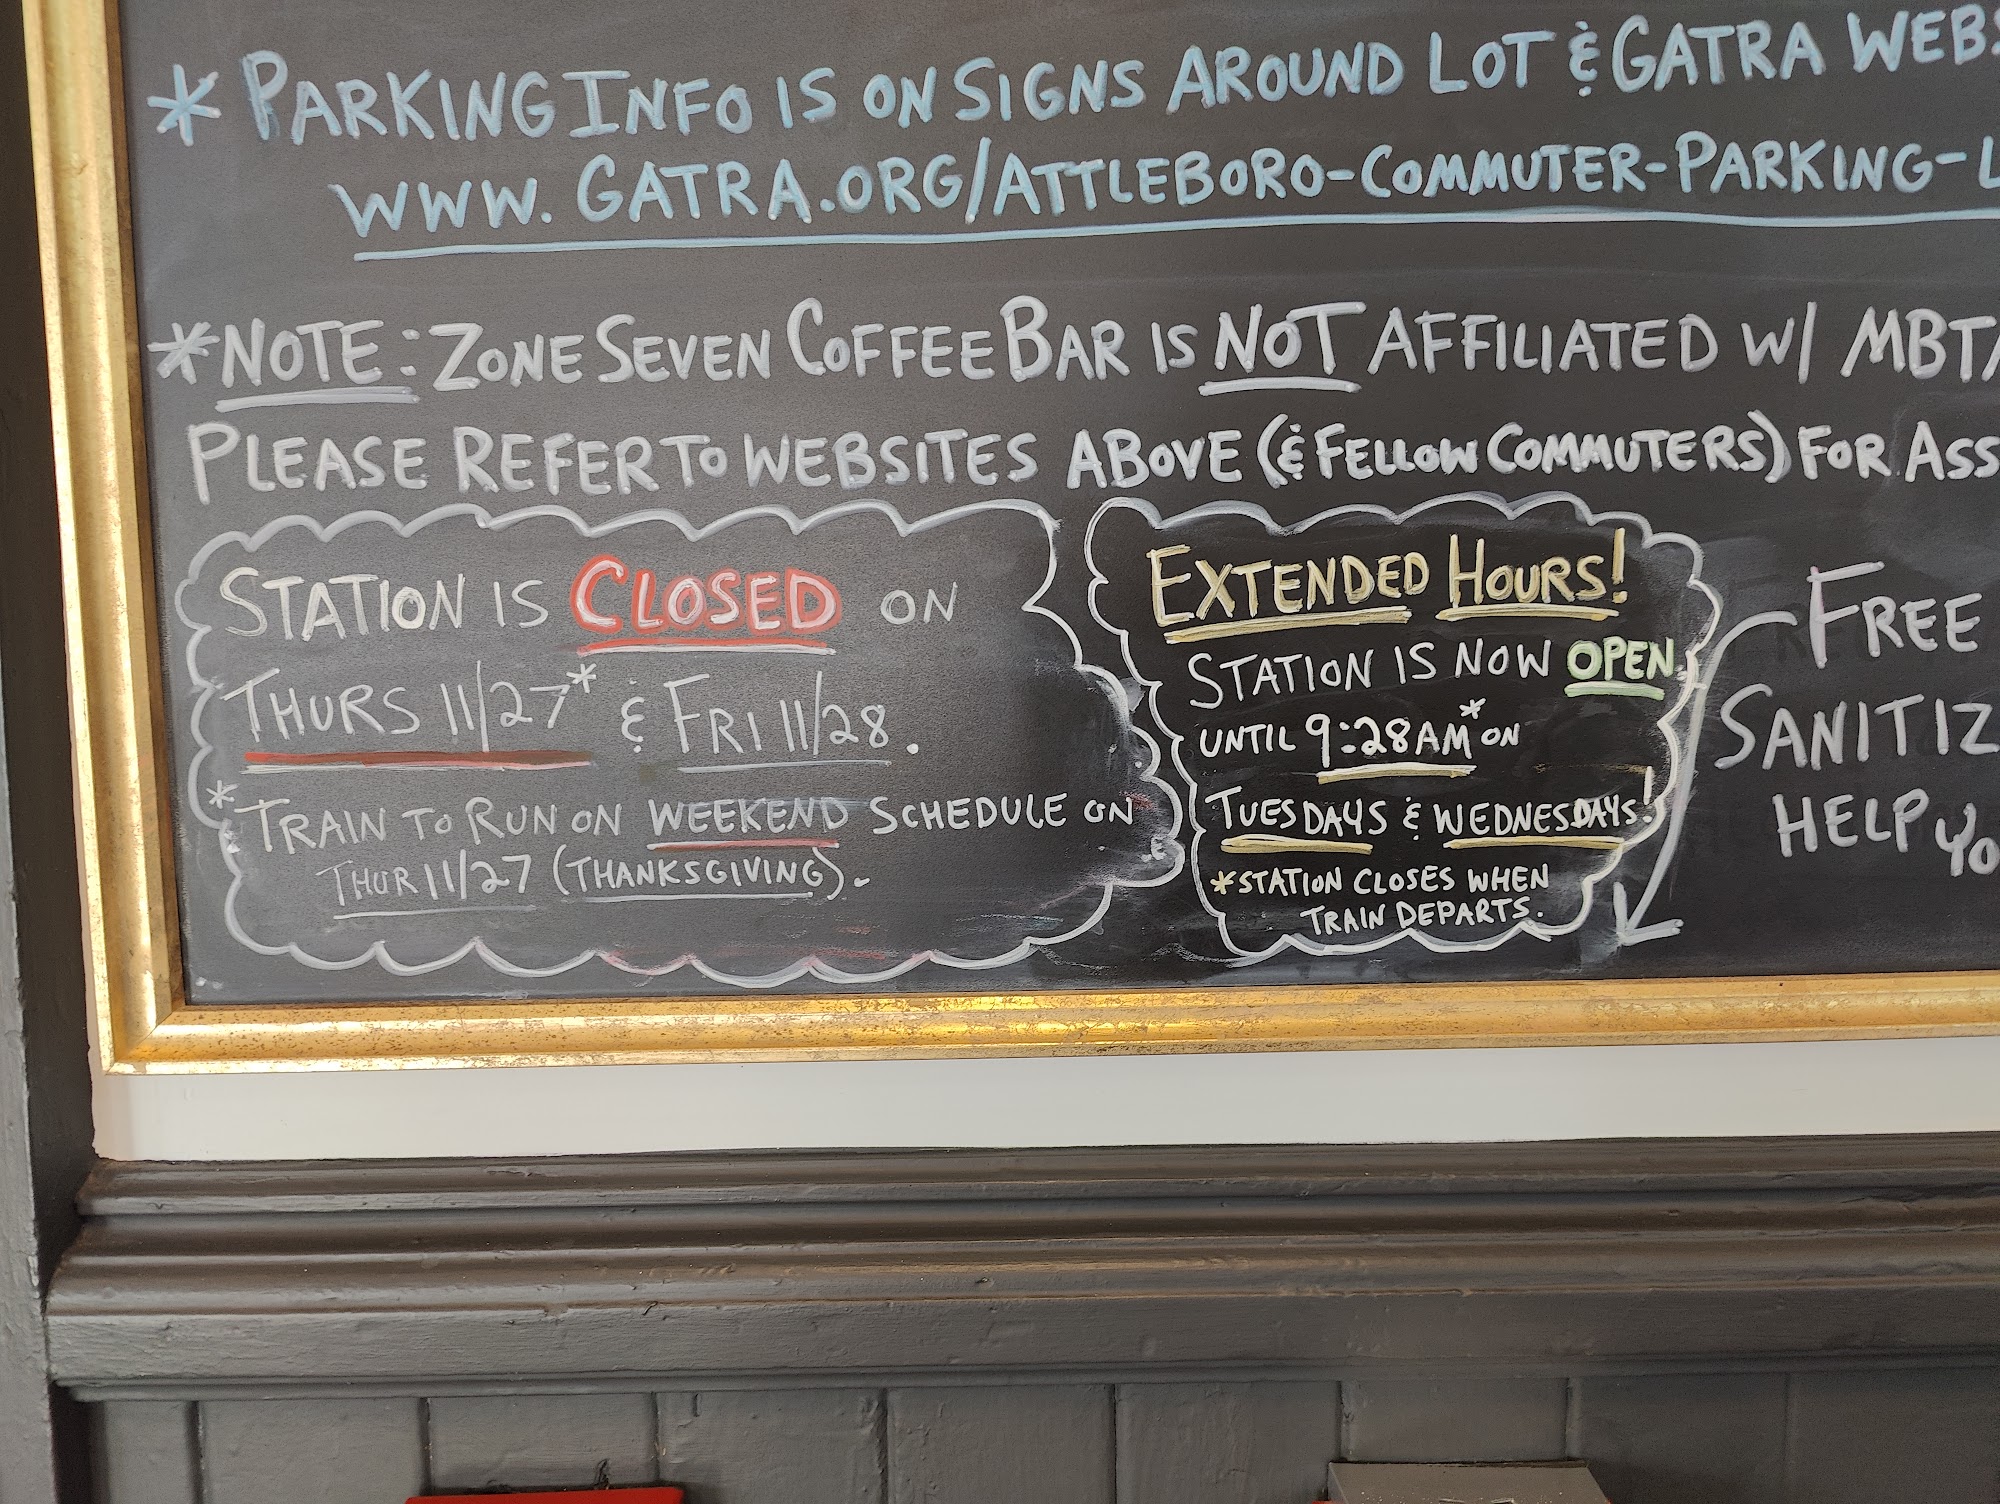 * PARKING INFO IS ON SIGNS AROUND LOT & GATRA WEBS
WWW.GATRA.ORG/ATTLEBORO-COMMUTER-PARKING-L
*NOTE: ZONE SEVEN COFFEE BAR IS NOT AFFILIATED W/ MBTA
PLEASE REFER TO WEBSITES ABOVE (& FELLOW COMMUTERS) FOR ASS
STATION IS CLOSED ON
THURS 11/27* & FRI 11/28.
*TRAIN TO RUN ON WEEKEND SCHEDULE ON
THUR 11/27 (THANKSGIVING).
EXTENDED HOURS!
STATION IS NOW OPEN
UNTIL 9:28AM* ON
TUESDAYS & WEDNESDAYS!
*STATION CLOSES WHEN
TRAIN DEPARTS.
FREE
SANITIZ
HELP YO